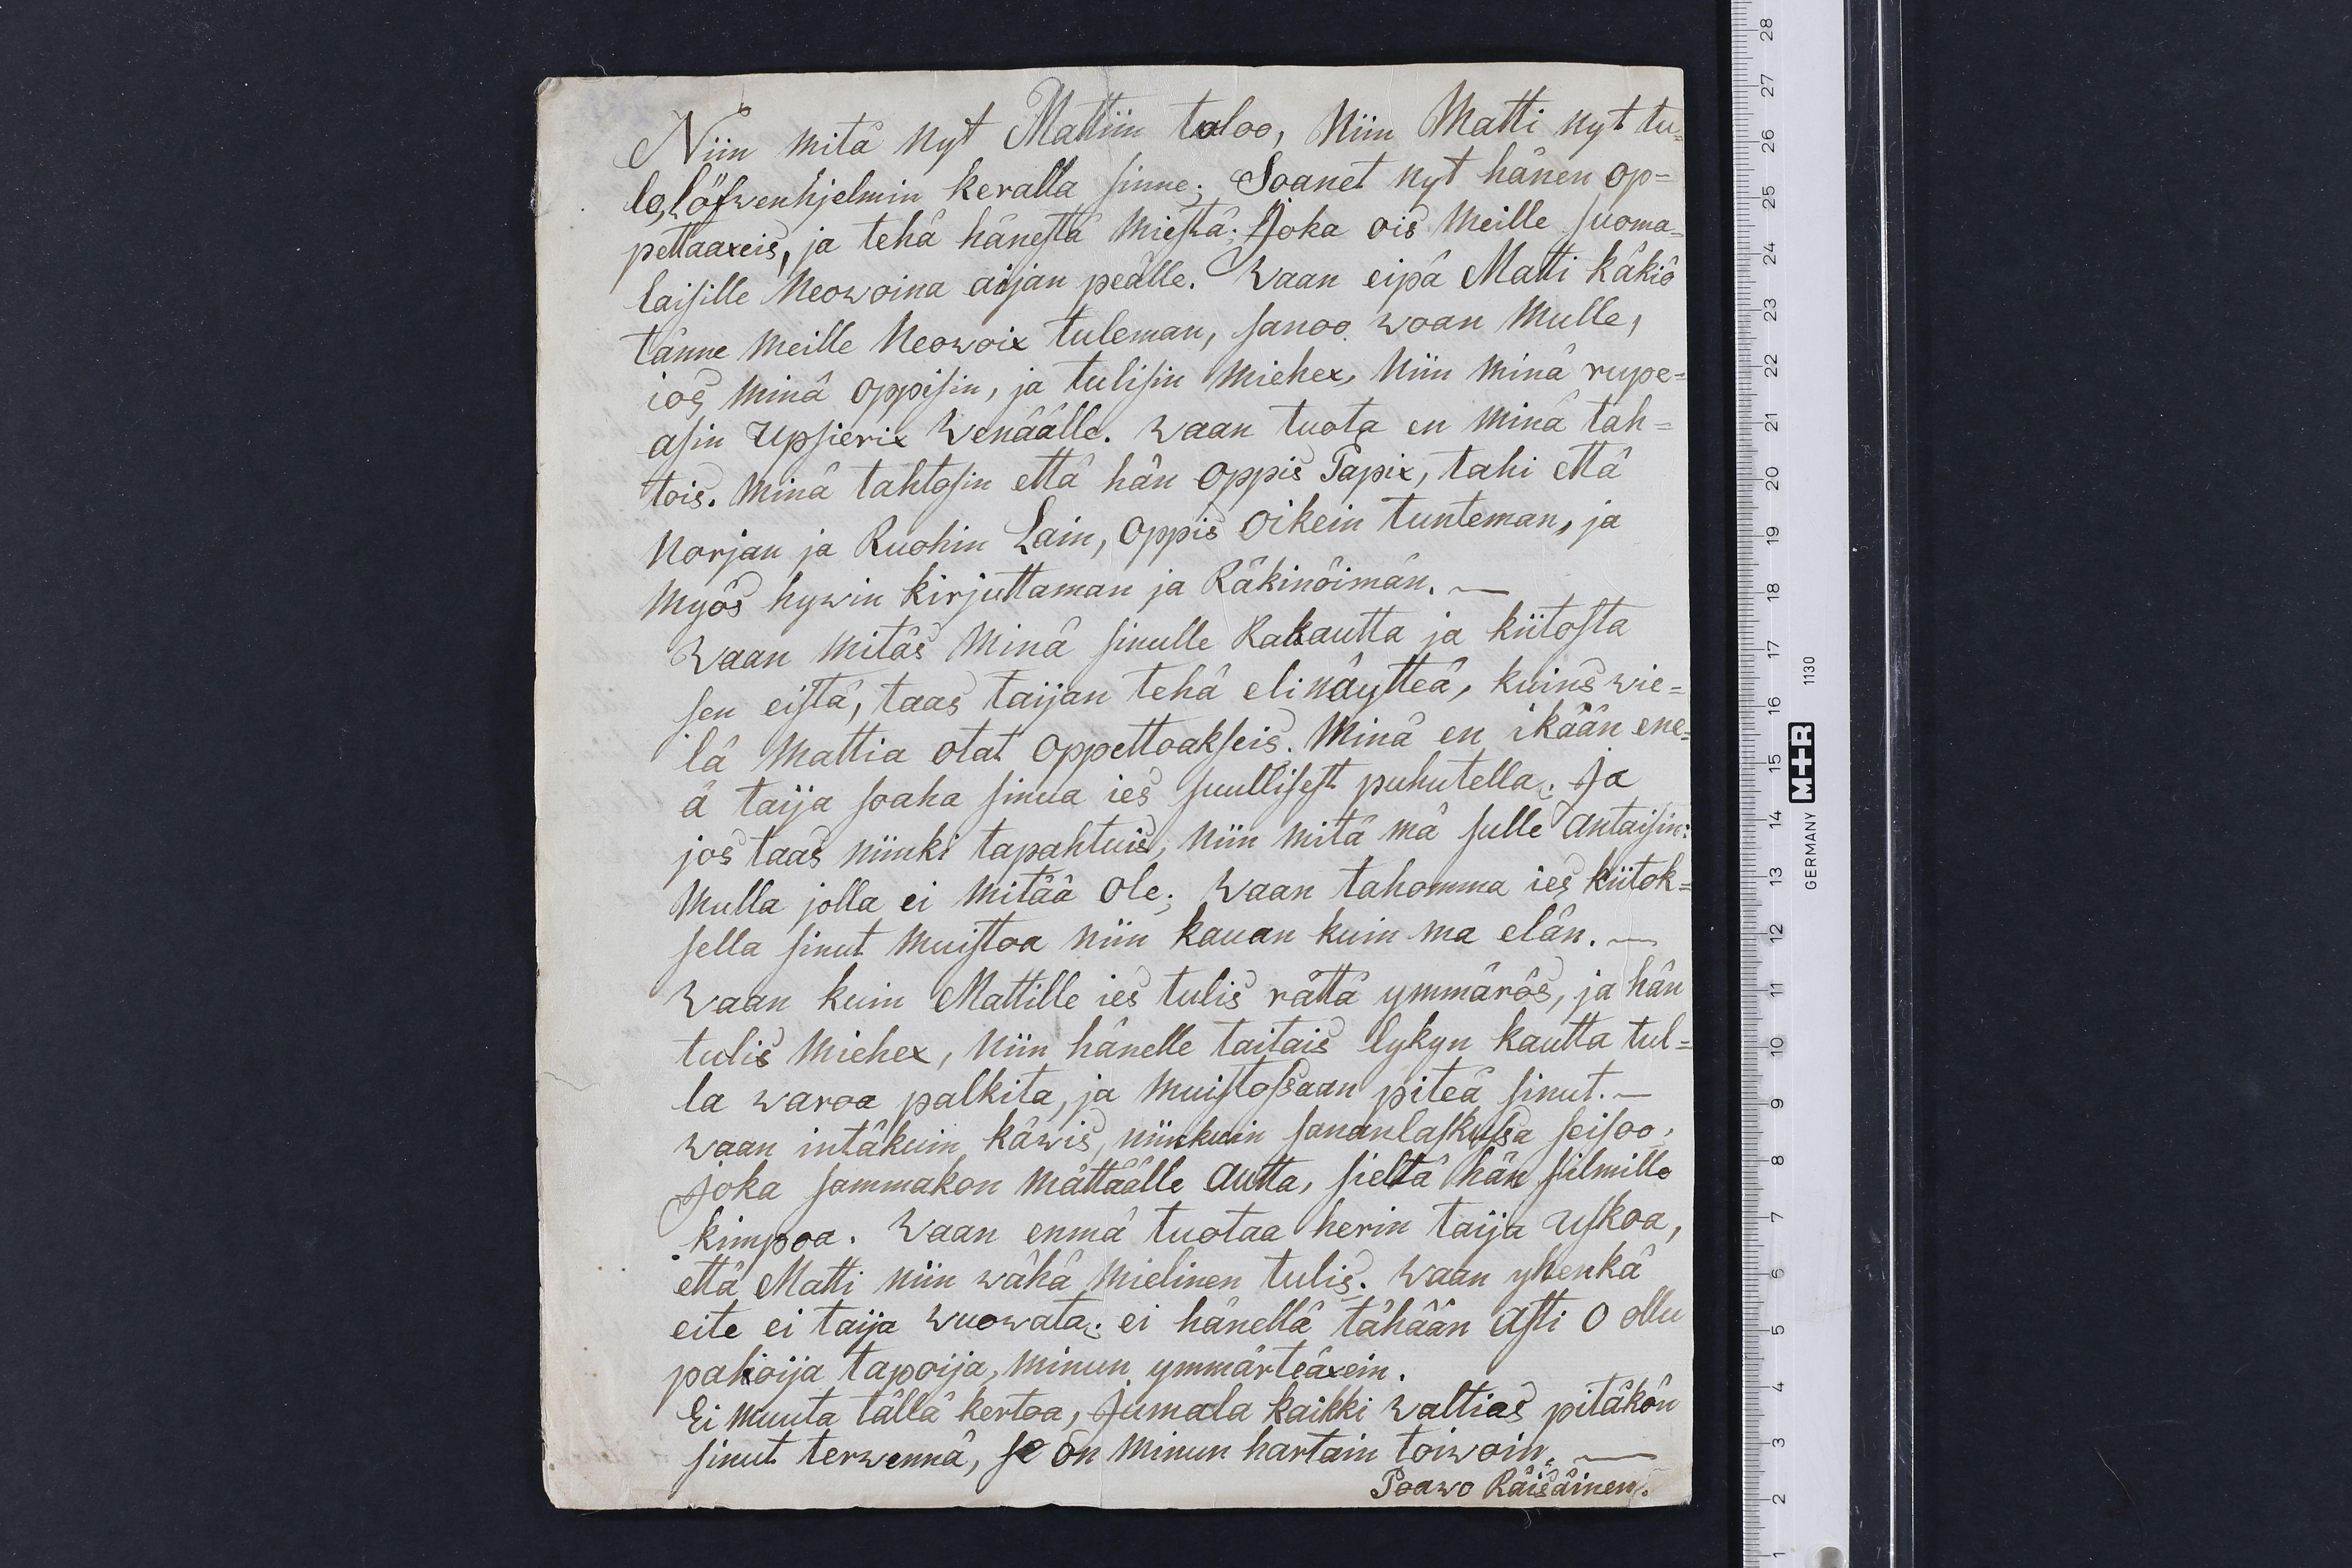 Niin mitä nyt Mattiin tuloo, Niin Matti nyt tu=
lo, löfwenhjelmin keralla sinne; Soanet nyt hänen op=
pettaaxeis, ja tehä hänestä miestä; Joka ois meille suoma=
laisille Neowoina aijan peälle. Waan eipä Matti käkiö
tänne meille Neowoix tuleman, sanoo woan mulle,
ios minä oppisin, ja tulisin miehex, Niin minä rupe=
asin Upsierix Wenäälle. Waan tuota en minä tah=
tois. minä tahtosin että hän oppis Papix, tahi että
Norjan ja Ruohin Lain, oppis oikein tunteman, ja
myös hywin kirjuttaman ja Räkinöimän. —
Waan mitäs minä sinulle Rakautta ja kiitosta
sen eistä, taas taijan tehä eli näytteä, kuins wie=
lä Mattia otat oppettoakseis. Minä en ikään ene=
ä taija soaha sinua ies suullisest puhutella. Ja
jos taas niinki tapahtuis, niin mitä mä sulle antaisin:
Mulla jolla ei mitää ole; Waan tahomma ies kiitok=
sella sinut muistoa niin kauan kuin ma elän. —
Waan kuin Mattille ies tulis rättä ymmärös, ja hän
tulis miehex, niin hänelle taitais lykyn kautta tul=
la waroa palkita, ja muistossaan piteä sinut. —
Waan intäkuin käwis, niinkuin sananlaskussa seisoo;
Joka sammakon mättäälle autta, sieltä hän silmille
kimpoa. Waan enmä tuotaa herin taija uskoa,
että Matti niin wähä mielinen tulis. Waan yhenkä
eite ei taija wuowata; ei hänellä tähään asti o ollu
pahoija tapoija, minun ymmärteäxein.
Ei muuta tällä kertoa, Jumala kaikki waltias pitäkön
sinut terwennä, se on minun hartain toiwoin. —
Poawo Räisäinen.
28
27
26
25
24
23
22
21
20
19
18
17
16
15
14
13
12
11
10
9
8
7
6
5
4
3
2
1
GERMANY M+R 1130